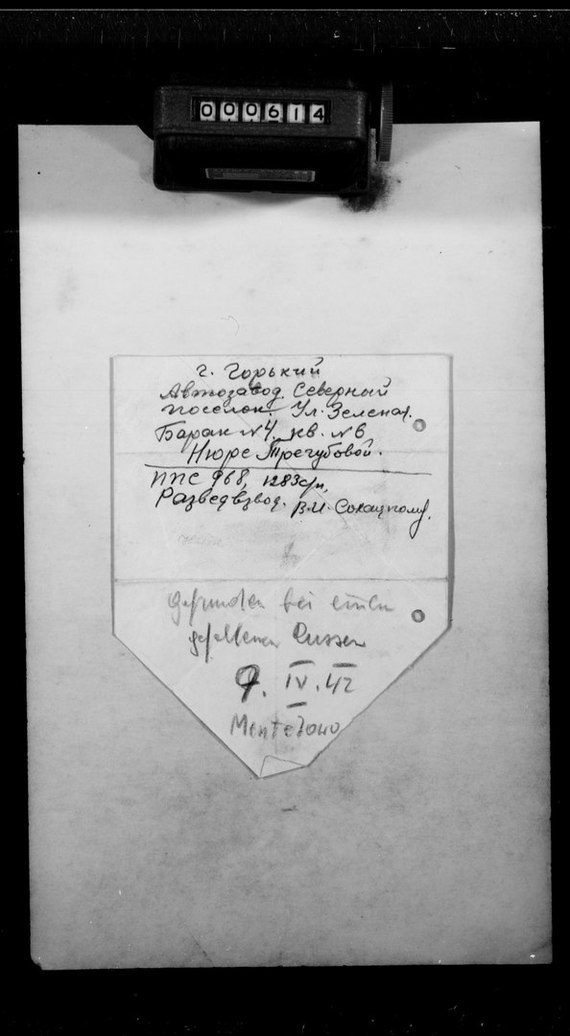 000614
г. Горький
Автозавод. Северный
поселок. Ул. Зеленая.
Барак №4. кв. №6
Нюре Трегубовой.
ППС 968, 1283 с/п,
Разведвзвод. В.И.
gefunden bei einem
gefallenen Russen
9. IV. 42